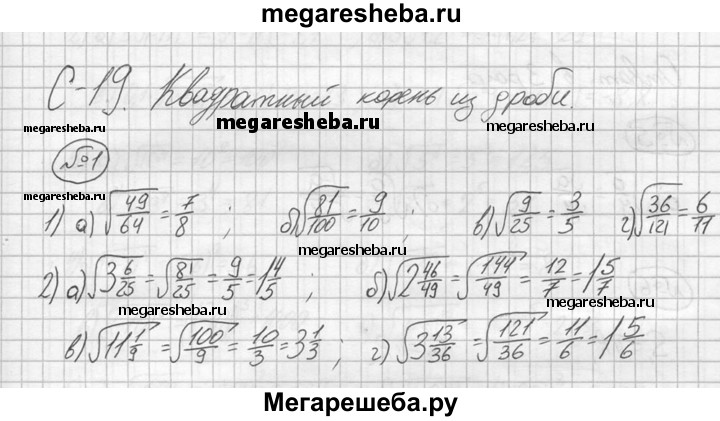 megaresheba.ru
С-19. Квадратный корень из дроби.
megaresheba.ru megaresheba.ru megaresheba.ru
№1
megaresheba.ru
1) а) √(49/64) = 7/8 ; б) √(81/100) = 9/10 ; в) √(9/25) = 3/5 г) √(36/121) = 6/11
megaresheba.ru megaresheba.ru
2) а) √(3 6/25) = √(81/25) = 9/5 = 1 4/5 ; б) √(2 46/49) = √(144/49) = 12/7 = 1 5/7
megaresheba.ru megaresheba.ru
megaresheba.ru
в) √(11 1/9) = √(100/9) = 10/3 = 3 1/3 ; г) √(3 13/36) = √(121/36) = 11/6 = 1 5/6
Мегарешеба.ру